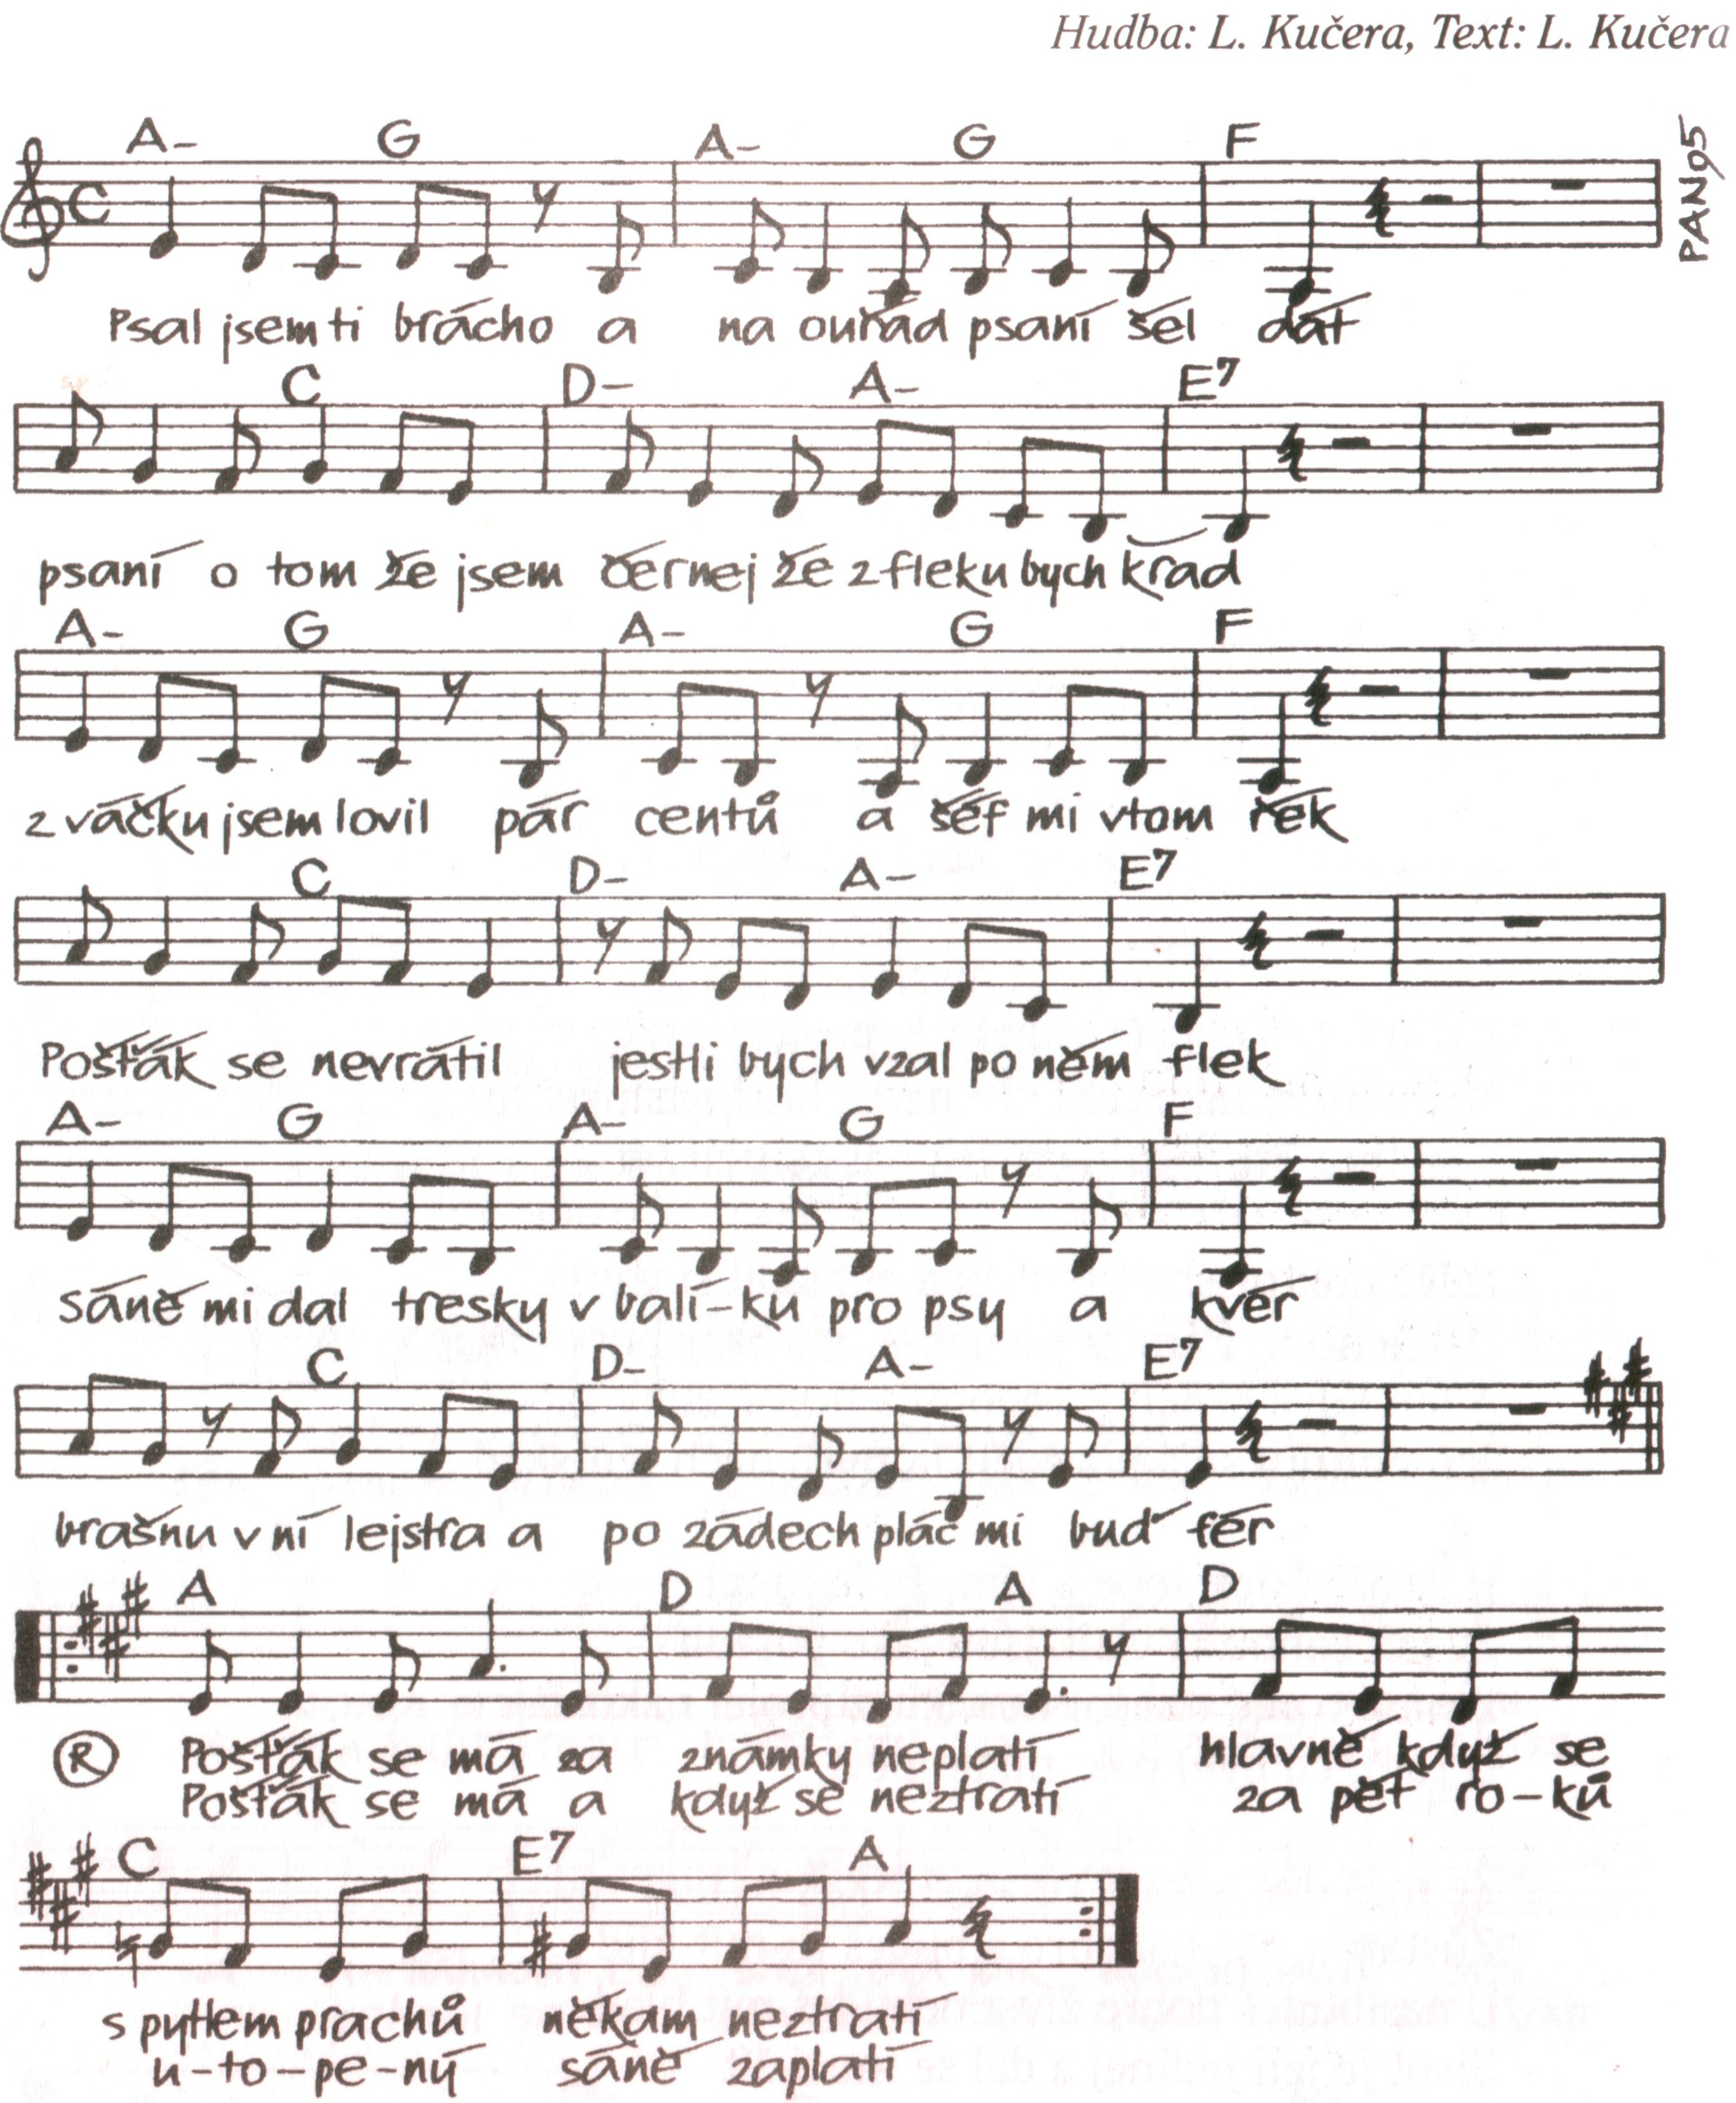 Hudba: L. Kučera, Text: L. Kučera
PAN95
A- G A- G F
Psal jsem ti brácho a na ouřad psaní šel dát
C D- A- E7
psaní o tom že jsem černej že z fleku bych křad
A- G A- G F
z váčku jsem lovil pár centů a šéf mi vtom řek
C D- A- E7
Pošťák se nevrátil jestli bych vzal po něm flek
A- G A- G F
sáně mi dal tresky v balí-ku pro psy a kvér
C D- A- E7
brašnu v ní lejstra a po zádech pláč mi buď fér
A D A D
R Pošťák se má za známky neplatí hlavně když se
Pošťák se má a když se neztratí za pět ro-ků
C E7 A
s pytlem prachů někam neztratí
u-to-pe-ný sáně zaplatí